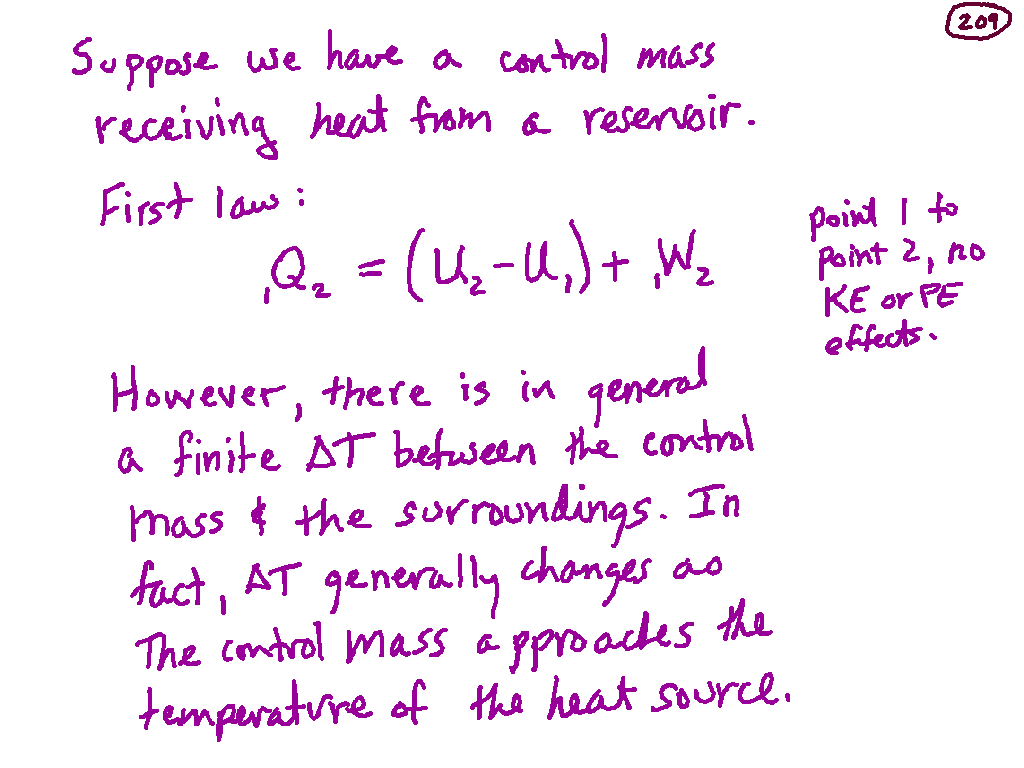 209
Suppose we have a control mass
receiving heat from a reservoir.
First law:
₁Q₂ = (U₂-U₁) + ₁W₂
point 1 to
point 2, no
KE or PE
effects.
However, there is in general
a finite ΔT between the control
mass & the surroundings. In
fact, ΔT generally changes as
The control mass approaches the
temperature of the heat source.